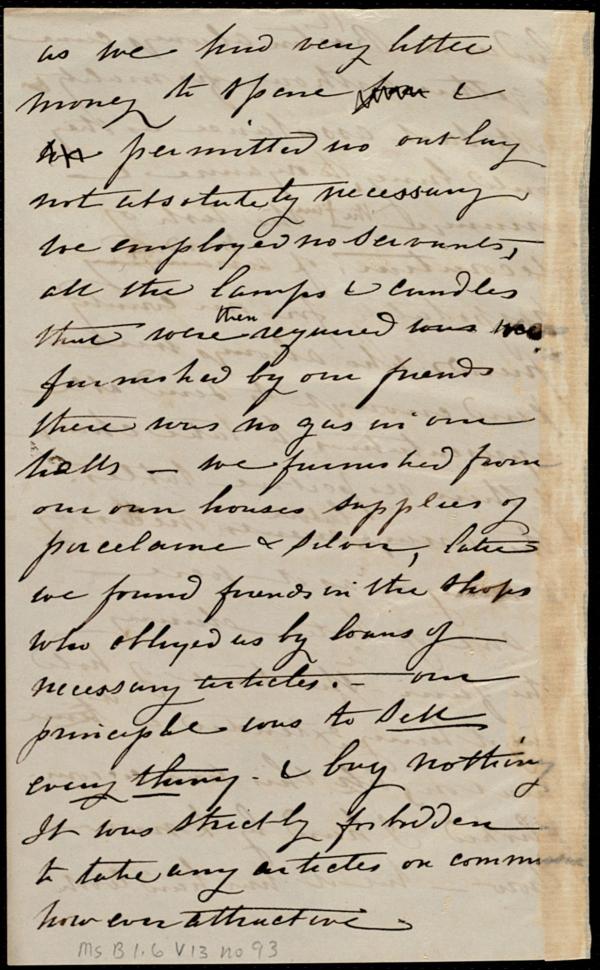 as we had very little
money to spare &
permitted no outlay
not absolutely necessary
we employed no servants,
all the lamps & candles
then
that were required was
furnished by our friends
there was no gas in our
halls — we furnished from
our own houses supplies of
porcelaine & silver, later
we found friends in the shops
who obliged us by loans of
necessary articles. — our
principle was to sell
every thing. & buy nothing
It was strictly forbidden
to take any articles on comm
however attractive
Ms B 1.6 V13 no 93